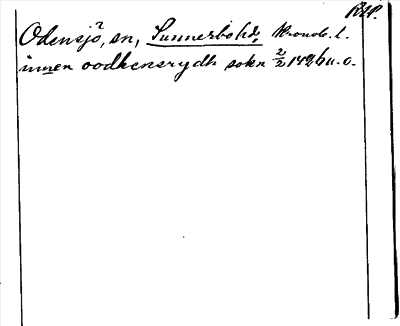 RAP.
Odensjö, sn, Sunnerbo hd, Kronob. l.
innen oodhensrydh sokn 2/2 1426 u. o.